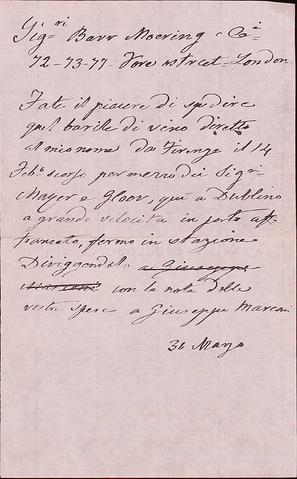 Sig.ri Barr Moering e Co.
72-73-77- Fore street - London
Fate il piacere di spedire
quel barile di vino diretto
al mio nome da Firenze il 14
Feb.o scorso per mezzo dei Sigri
Mayer e Gloor, qui a Dublino
a grande velocità in porto af-
francato, fermo in stazione
a Giuseppe
Marconi con la nota delle
vostre spese a Giuseppe Marconi
31 Marzo